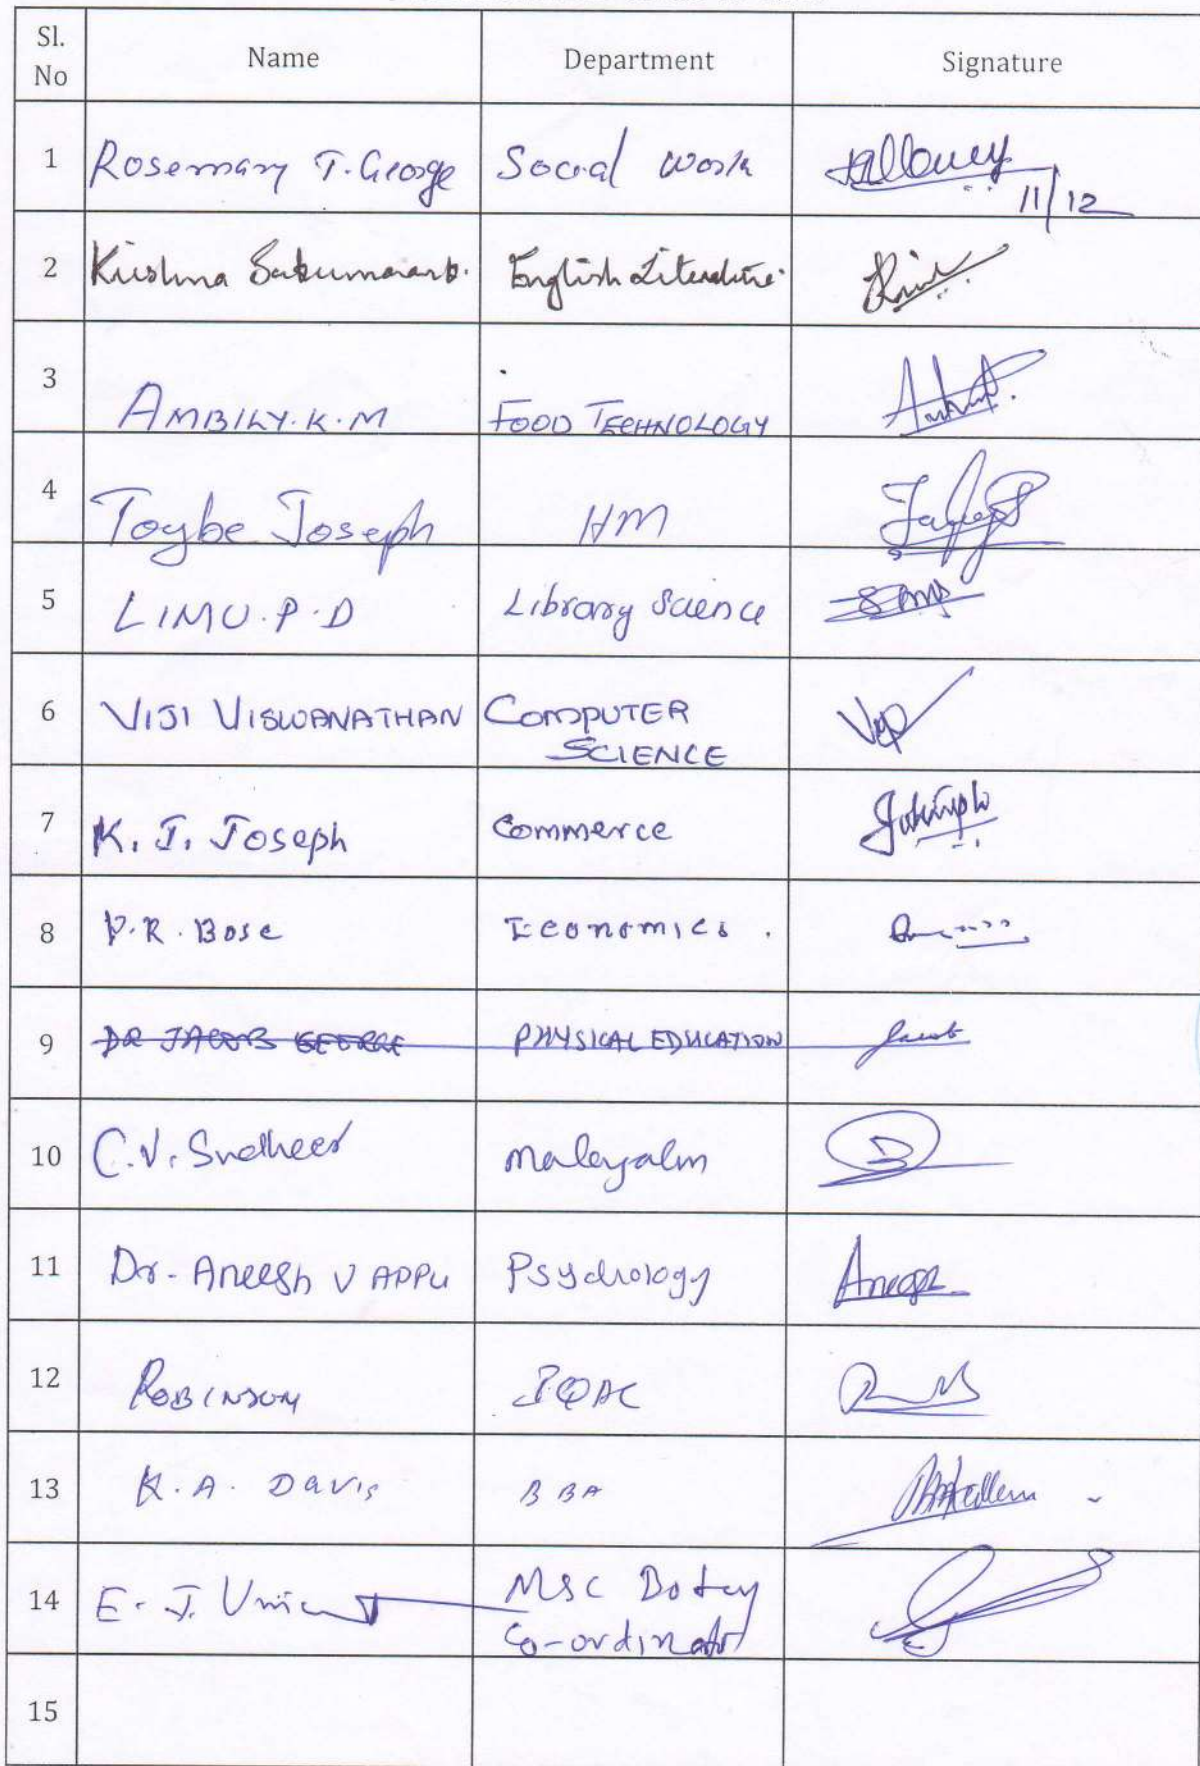 Sl. No Name Department Signature
1 Rosemary T. George Social Work
11/12
2 Krishna Sukumaran English Literature.
3 AMBILY.K.M FOOD TECHNOLOGY
4 Toybe Joseph HM
5 LIMU.P.D Library Science
6 VIJI VISWANATHAN COMPUTER
SCIENCE
7 K. J. Joseph Commerce
8 P.R. Bose Economics.
9 DR JACOB GEORGE PHYSICAL EDUCATION Jacob
10 C.V. Sudheer Malayalm
11 Dr. Aneesh V APPU Psychology
12 ROBINSON IQAC
13 K.A. Davis BBA
14 E. J. MSC
Co-ordinator
15